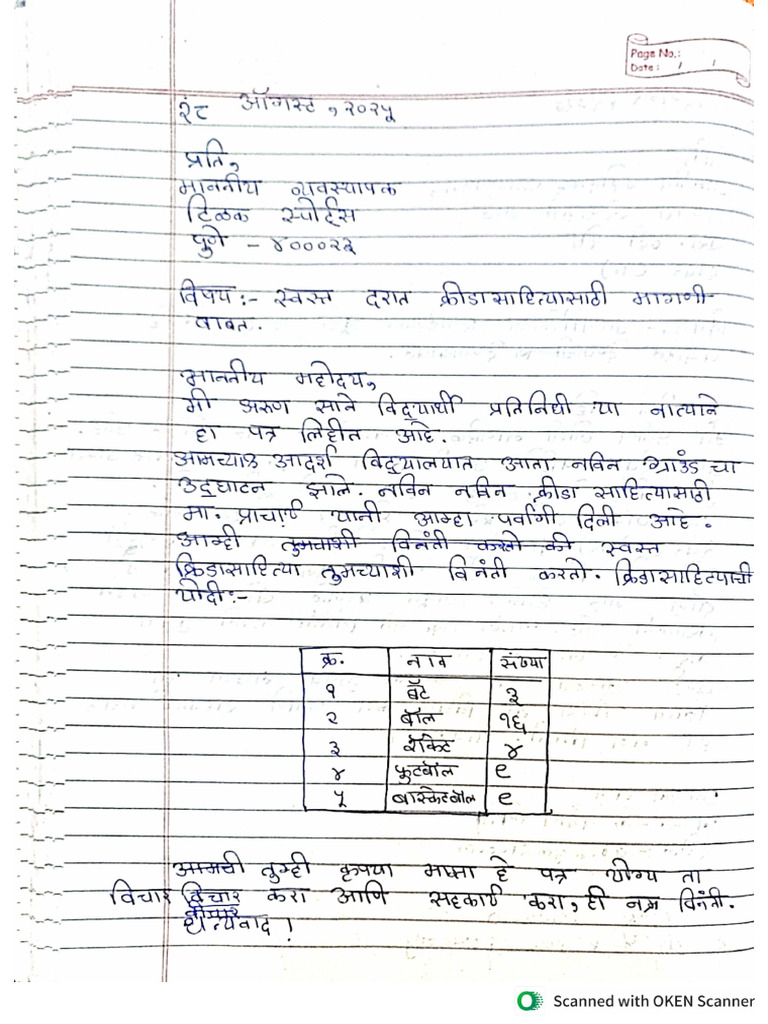 Page No.:
Date : / /
२८ ऑगस्ट, २०२५
प्रति,
माननीय व्यवस्थापक
टिळक स्पोर्ट्स
पुणे - ४०००२३
विषय :- स्वस्त दरात क्रीडासाहित्यासाठी मागणी
बाबत.
माननीय महोदय,
मी अरुण साने विद्यार्थी प्रतिनिधी या नात्याने
हा पत्र लिहीत आहे.
आमच्या आदर्श विद्यालयात आता नविन ग्राउंड चा
उद्घाटन झाले. नविन नविन क्रीडा साहित्यासाठी
मा. प्राचार्य यांनी आम्हा पर्वागी दिली आहे.
आम्ही तुमच्याशी विनंती करतो की स्वस्त
क्रिडासाहित्या तुमच्याशी विनंती करतो. क्रिडासाहित्याची
योदी:-
क्र. नाव संख्या
१ बॅट ३
२ बॉल १६
३ रॅकेट ४
४ फुटबॉल ९
५ बास्केटबॉल ९
आमची तुम्ही कृपया माझा हे पत्र योग्य ता
विचार विचार करा आणि सहकार्य करा, ही नम्र विनंती.
धन्यवाद !
Scanned with OKEN Scanner